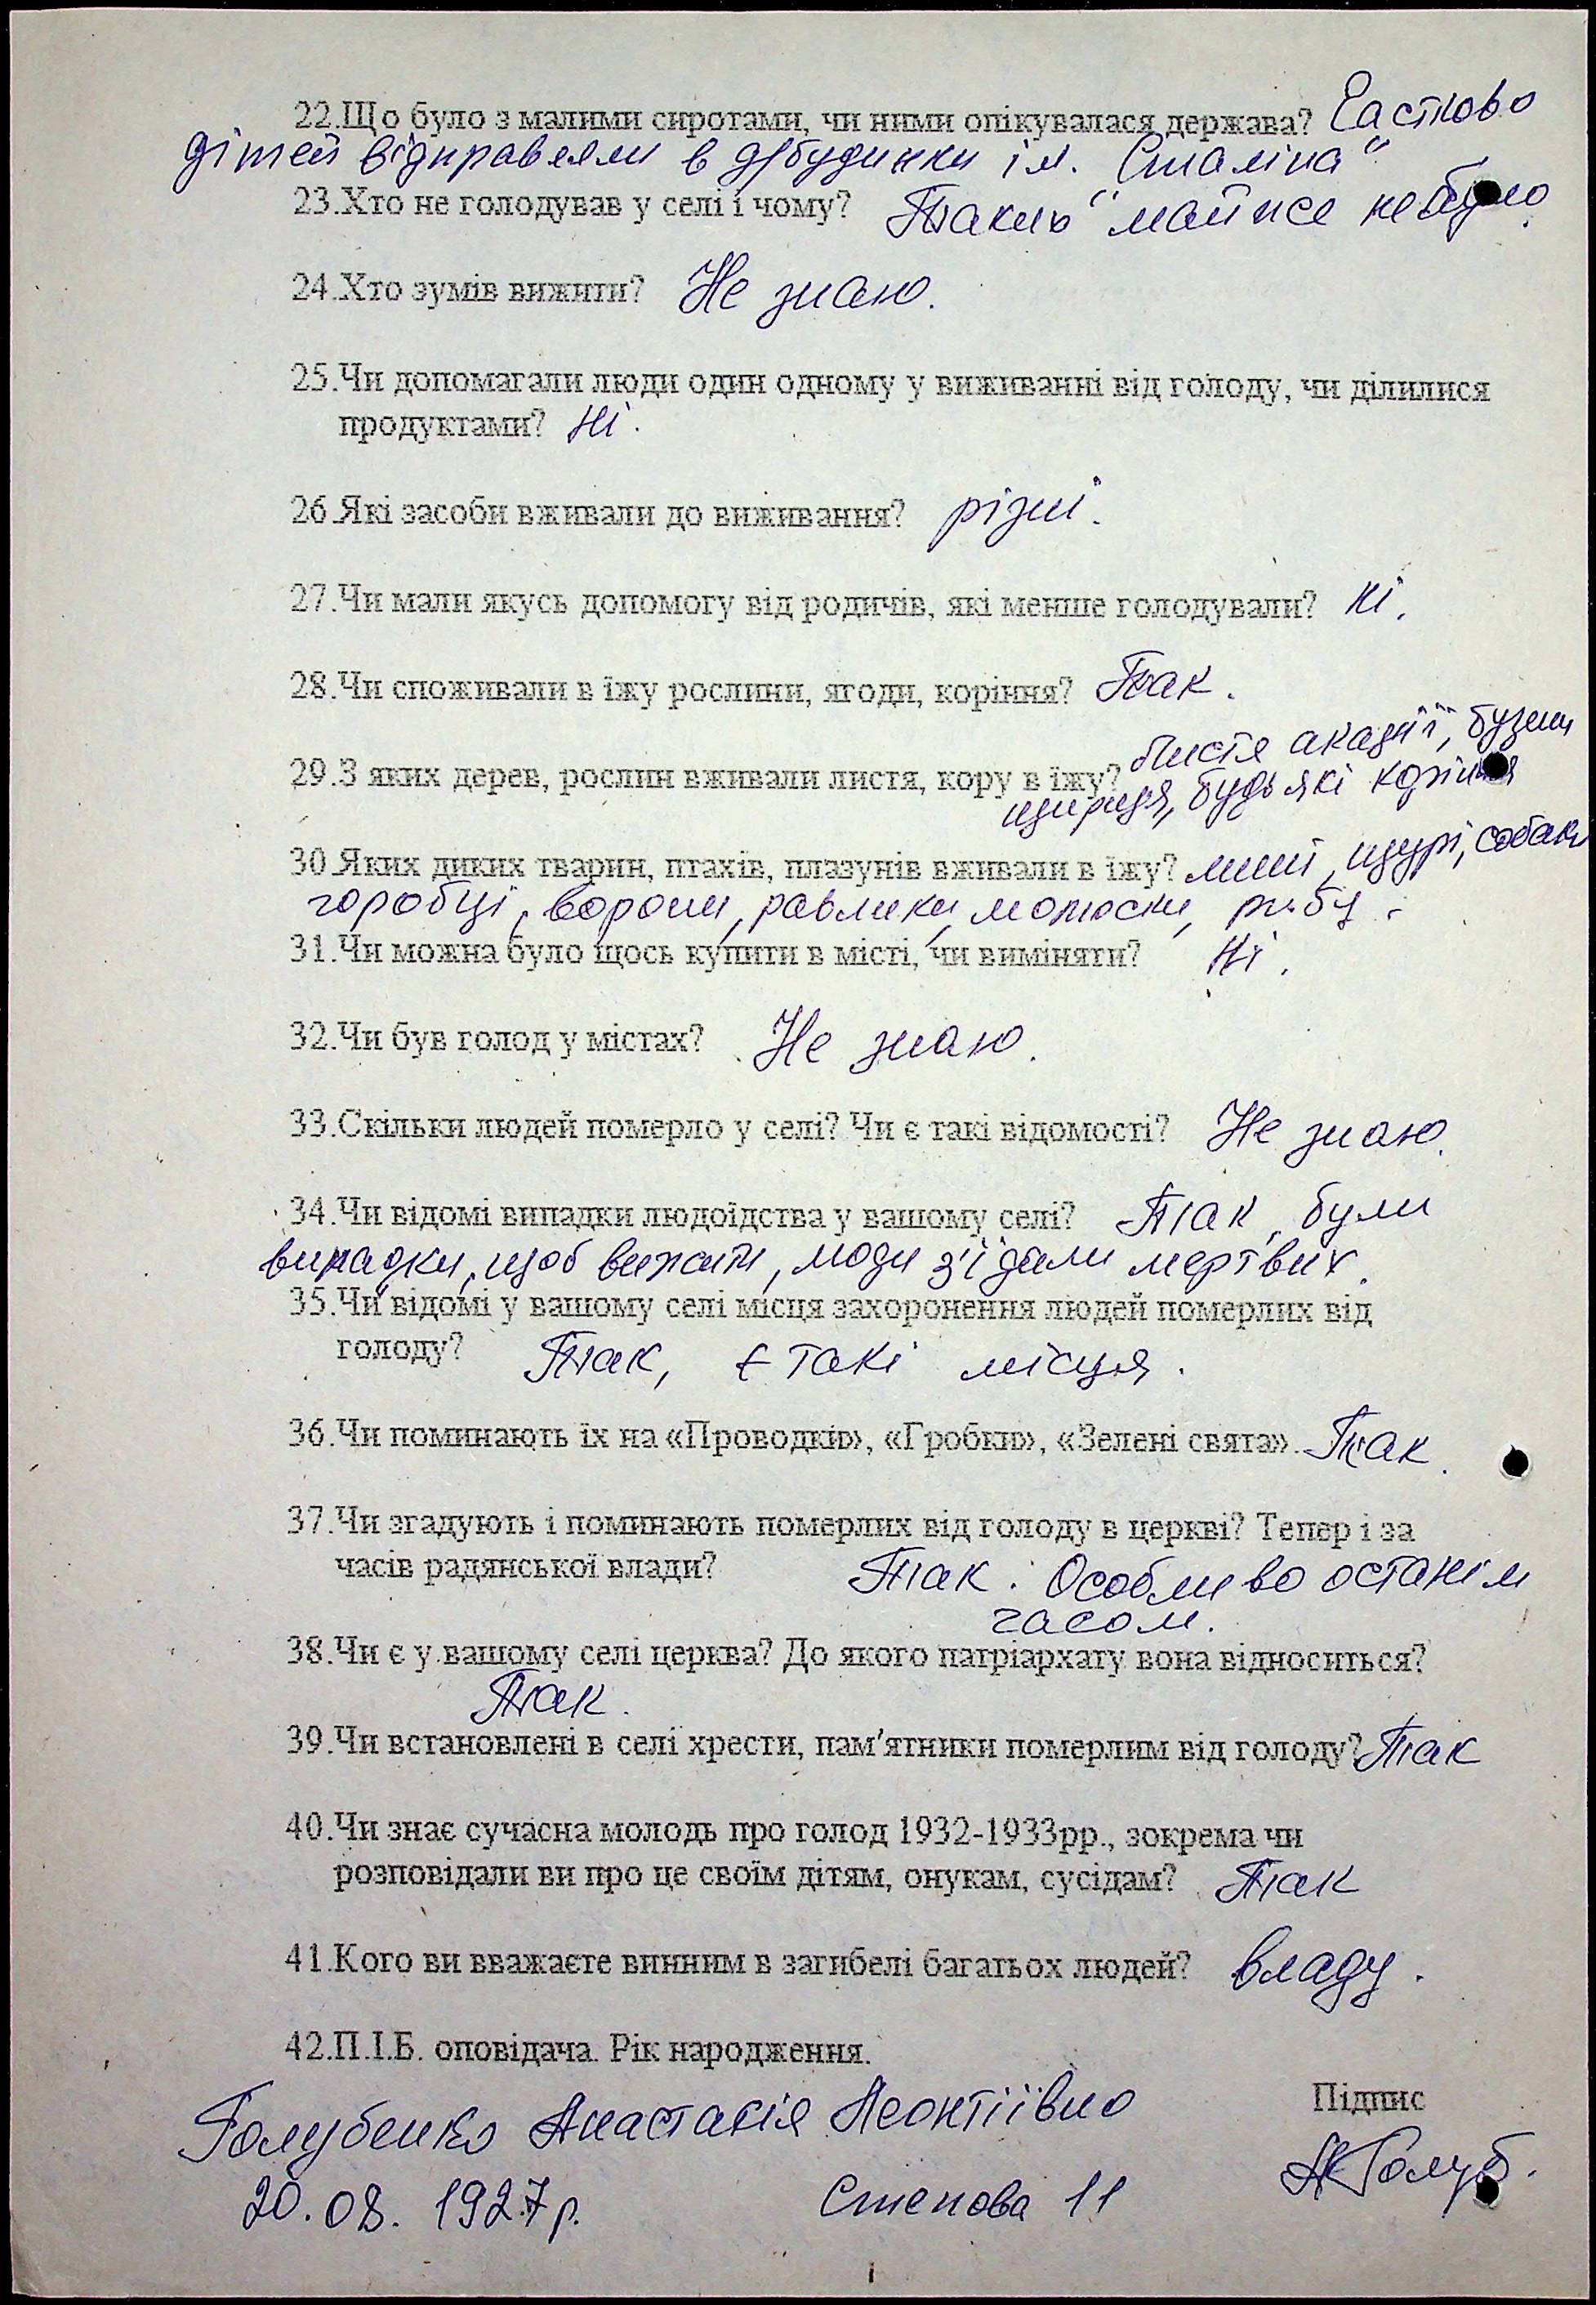 22.Що було з малими сиротами, чи ними опікувалася держава? Частково
дітей відправляли в д/будинки ім. Сталіна"
23.Хто не голодував у селі і чому? Таких майже не було.
24.Хто зумів вижити? Не знаю.
25.Чи допомагали люди один одному у виживанні від голоду, чи ділилися
продуктами? Ні.
26.Які засоби вживали до виживання? різні.
27.Чи мали якусь допомогу від родичів, які менше голодували? Ні.
28.Чи споживали в їжу рослини, ягоди, коріння? Так.
29.З яких дерев, рослин вживали листя, кору в їжу? Листя акації, бузини
щириця, будь які коріння
30.Яких диких тварин, птахів, плазунів вживали в їжу? миші, щурі, собаки
горобці, ворони, равлики, молюски, рибу.
31.Чи можна було щось купити в місті, чи виміняти? Ні.
32.Чи був голод у містах? Не знаю.
33.Скільки людей померло у селі? Чи є такі відомості? Не знаю.
34.Чи відомі випадки людоїдства у вашому селі? Так, були
випадки, щоб вижити, люди з'їдали мертвих.
35.Чи відомі у вашому селі місця захоронення людей померлих від
голоду? Так, є такі місця.
36.Чи поминають їх на «Проводків», «Гробків», «Зелені свята». Так.
37.Чи згадують і поминають померлих від голоду в церкві? Тепер і за
часів радянської влади? Так. Особливо останім
часом.
38.Чи є у вашому селі церква? До якого патріархату вона відноситься?
Так.
39.Чи встановлені в селі хрести, пам'ятники померлим від голоду? Так
40.Чи знає сучасна молодь про голод 1932-1933рр., зокрема чи
розповідали ви про це своїм дітям, онукам, сусідам? Так
41.Кого ви вважаєте винним в загибелі багатьох людей? владу.
42.П.І.Б. оповідача. Рік народження.
Підпис
Голубенко Анастасія Леонтіївна
Голуб.
20.08. 1927р. Степова 11